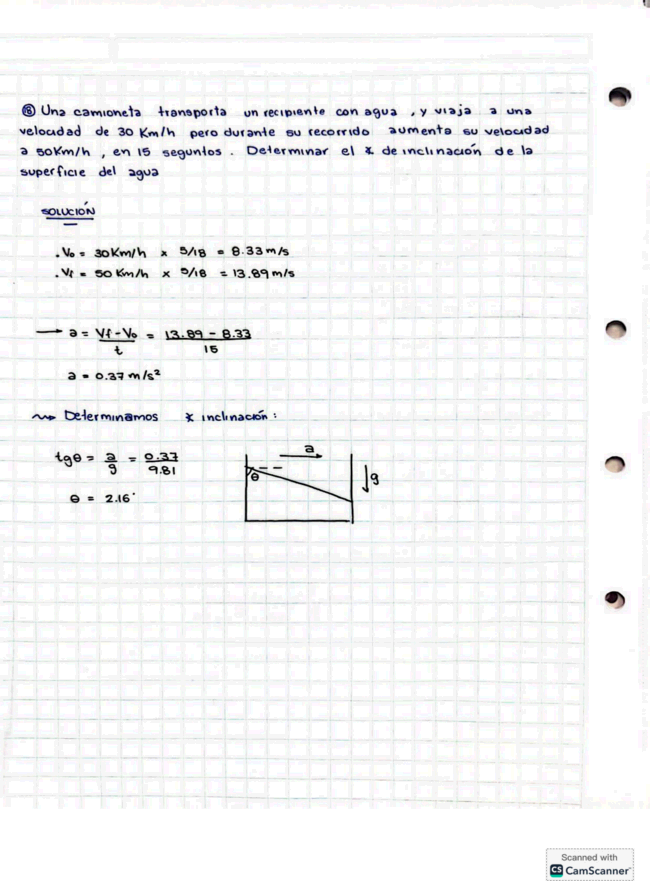 ⑱ Una camioneta transporta un recipiente con agua, y viaja a una
velocidad de 30 Km/h pero durante su recorrido aumenta su velocidad
a 50Km/h, en 15 seguntos. Determinar el ∡ de inclinación de la
superficie del agua
SOLUCIÓN
. Vo = 30Km/h x 5/18 = 8.33 m/s
. Vf = 50 Km/h x 5/18 = 13.89 m/s
→ a = Vf - Vo / t = 13.89 - 8.33 / 15
a = 0.37 m/s²
⇝ Determinamos ∡ inclinación:
tgθ = a/g = 0.37/9.81
θ = 2.16°
a
θ
g
Scanned with
CS CamScanner